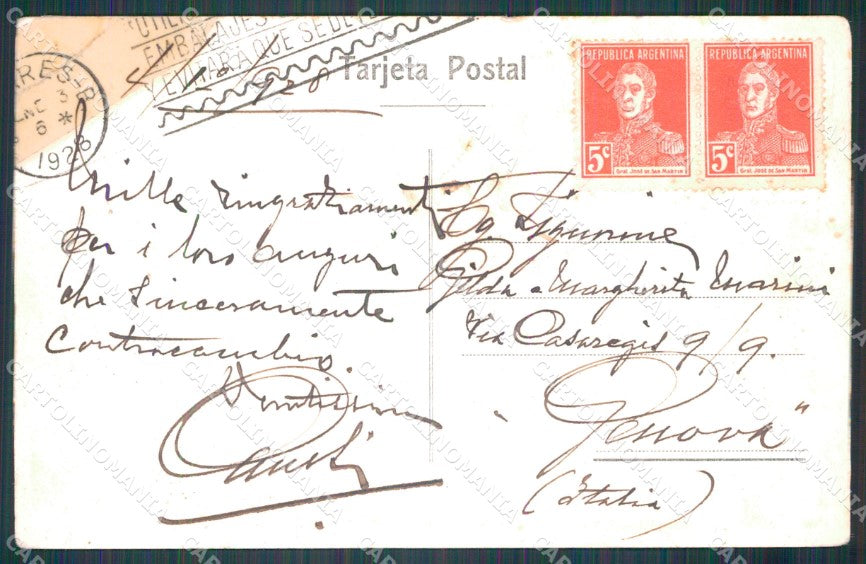 UTILICE
EMBALAJES
Y EVITARA QUE SE DE
AIRES-R
ENE 3
6 *
1928
Tarjeta Postal
REPUBLICA ARGENTINA
5c
Gral. José de San Martin
REPUBLICA ARGENTINA
5c
Gral. José de San Martin
Mille ringraziamenti
per i loro auguri
che sinceramente
contraccambio.
Eg Signorine
Gilda e Margherita Marini
Via Casaregis 9/9.
"Genova"
(Italia)
CARTOLINOMANIA